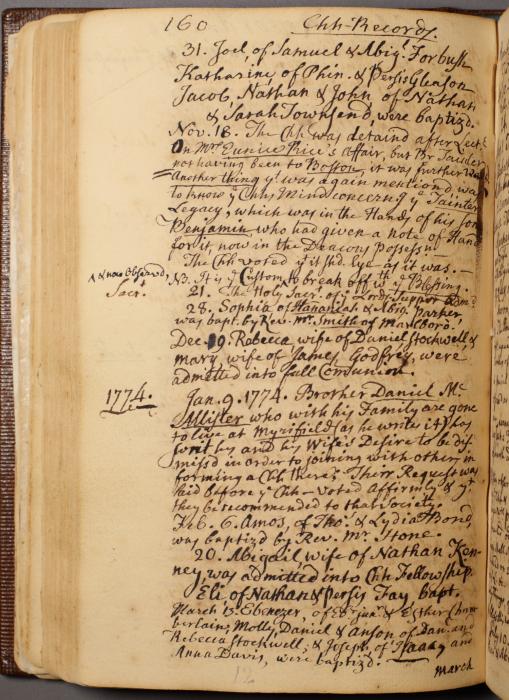 160 Chh-Records.
31. Joel, of Samuel & Abigl. Forbush
Katharine, of Phin. & Persis Gleason
Jacob, Nathan & John, of Nathan
& Sarah Townsend, were baptizd.
Nov. 18. The Chh was detaind after Lect.
On Mrs Eunice Price's Affair, but Br
not having been to Boston, it was further
Another thing yt. was again mentiond, was
to know ye Chhs Mind concerng ye Tainter
Legacy, which was in the Hands of his son
Benjamin who had given a note of Hand
for it, now in the Deacons Possessn.
The Chh voted yt it shd. Lye as it was.—
N3. It is ye Custom to break off wth ye Blessing.
Sacrt.
21. The Holy Sacr. of ye Lords Supper
28. Sophia of Hananiah & Abigl. Parker
was bapt. by Rev. Mr. Smith of Marlboro'.
Dec. 19. Rebecca wife of Daniel Stockwell &
Mary, wife of James Godfrey, were
admitted into full Comunion.
1774.
Jan. 9. 1774. Brother Daniel Mc.
Allister who with his Family are gone
to live at Myrifield (as he writes it) has
sent his and his Wife's Desire to be dis-
miss'd in order to joining with others in
forming a Chh there; Their Request was
laid before ye Chh — voted Affirmly & yt
they be recommended to that Society.
Feb. 6. Amos, of Tho. & Lydia Bond,
was baptizd by Rev. Mr. Stone.
20. Abigail, wife of Nathan Ken-
ney, was admitted into Chh Fellowship.
Eli of Nathan & Persis Fay bapt.
March 13. Ebenezer, of Ebr junr. & Esther Cham-
berlain; Molly, Daniel & Anson of Danl. and
Rebecca Stockwell, & Joseph, of Isaac and
Anna Davis, were baptiz'd.
March